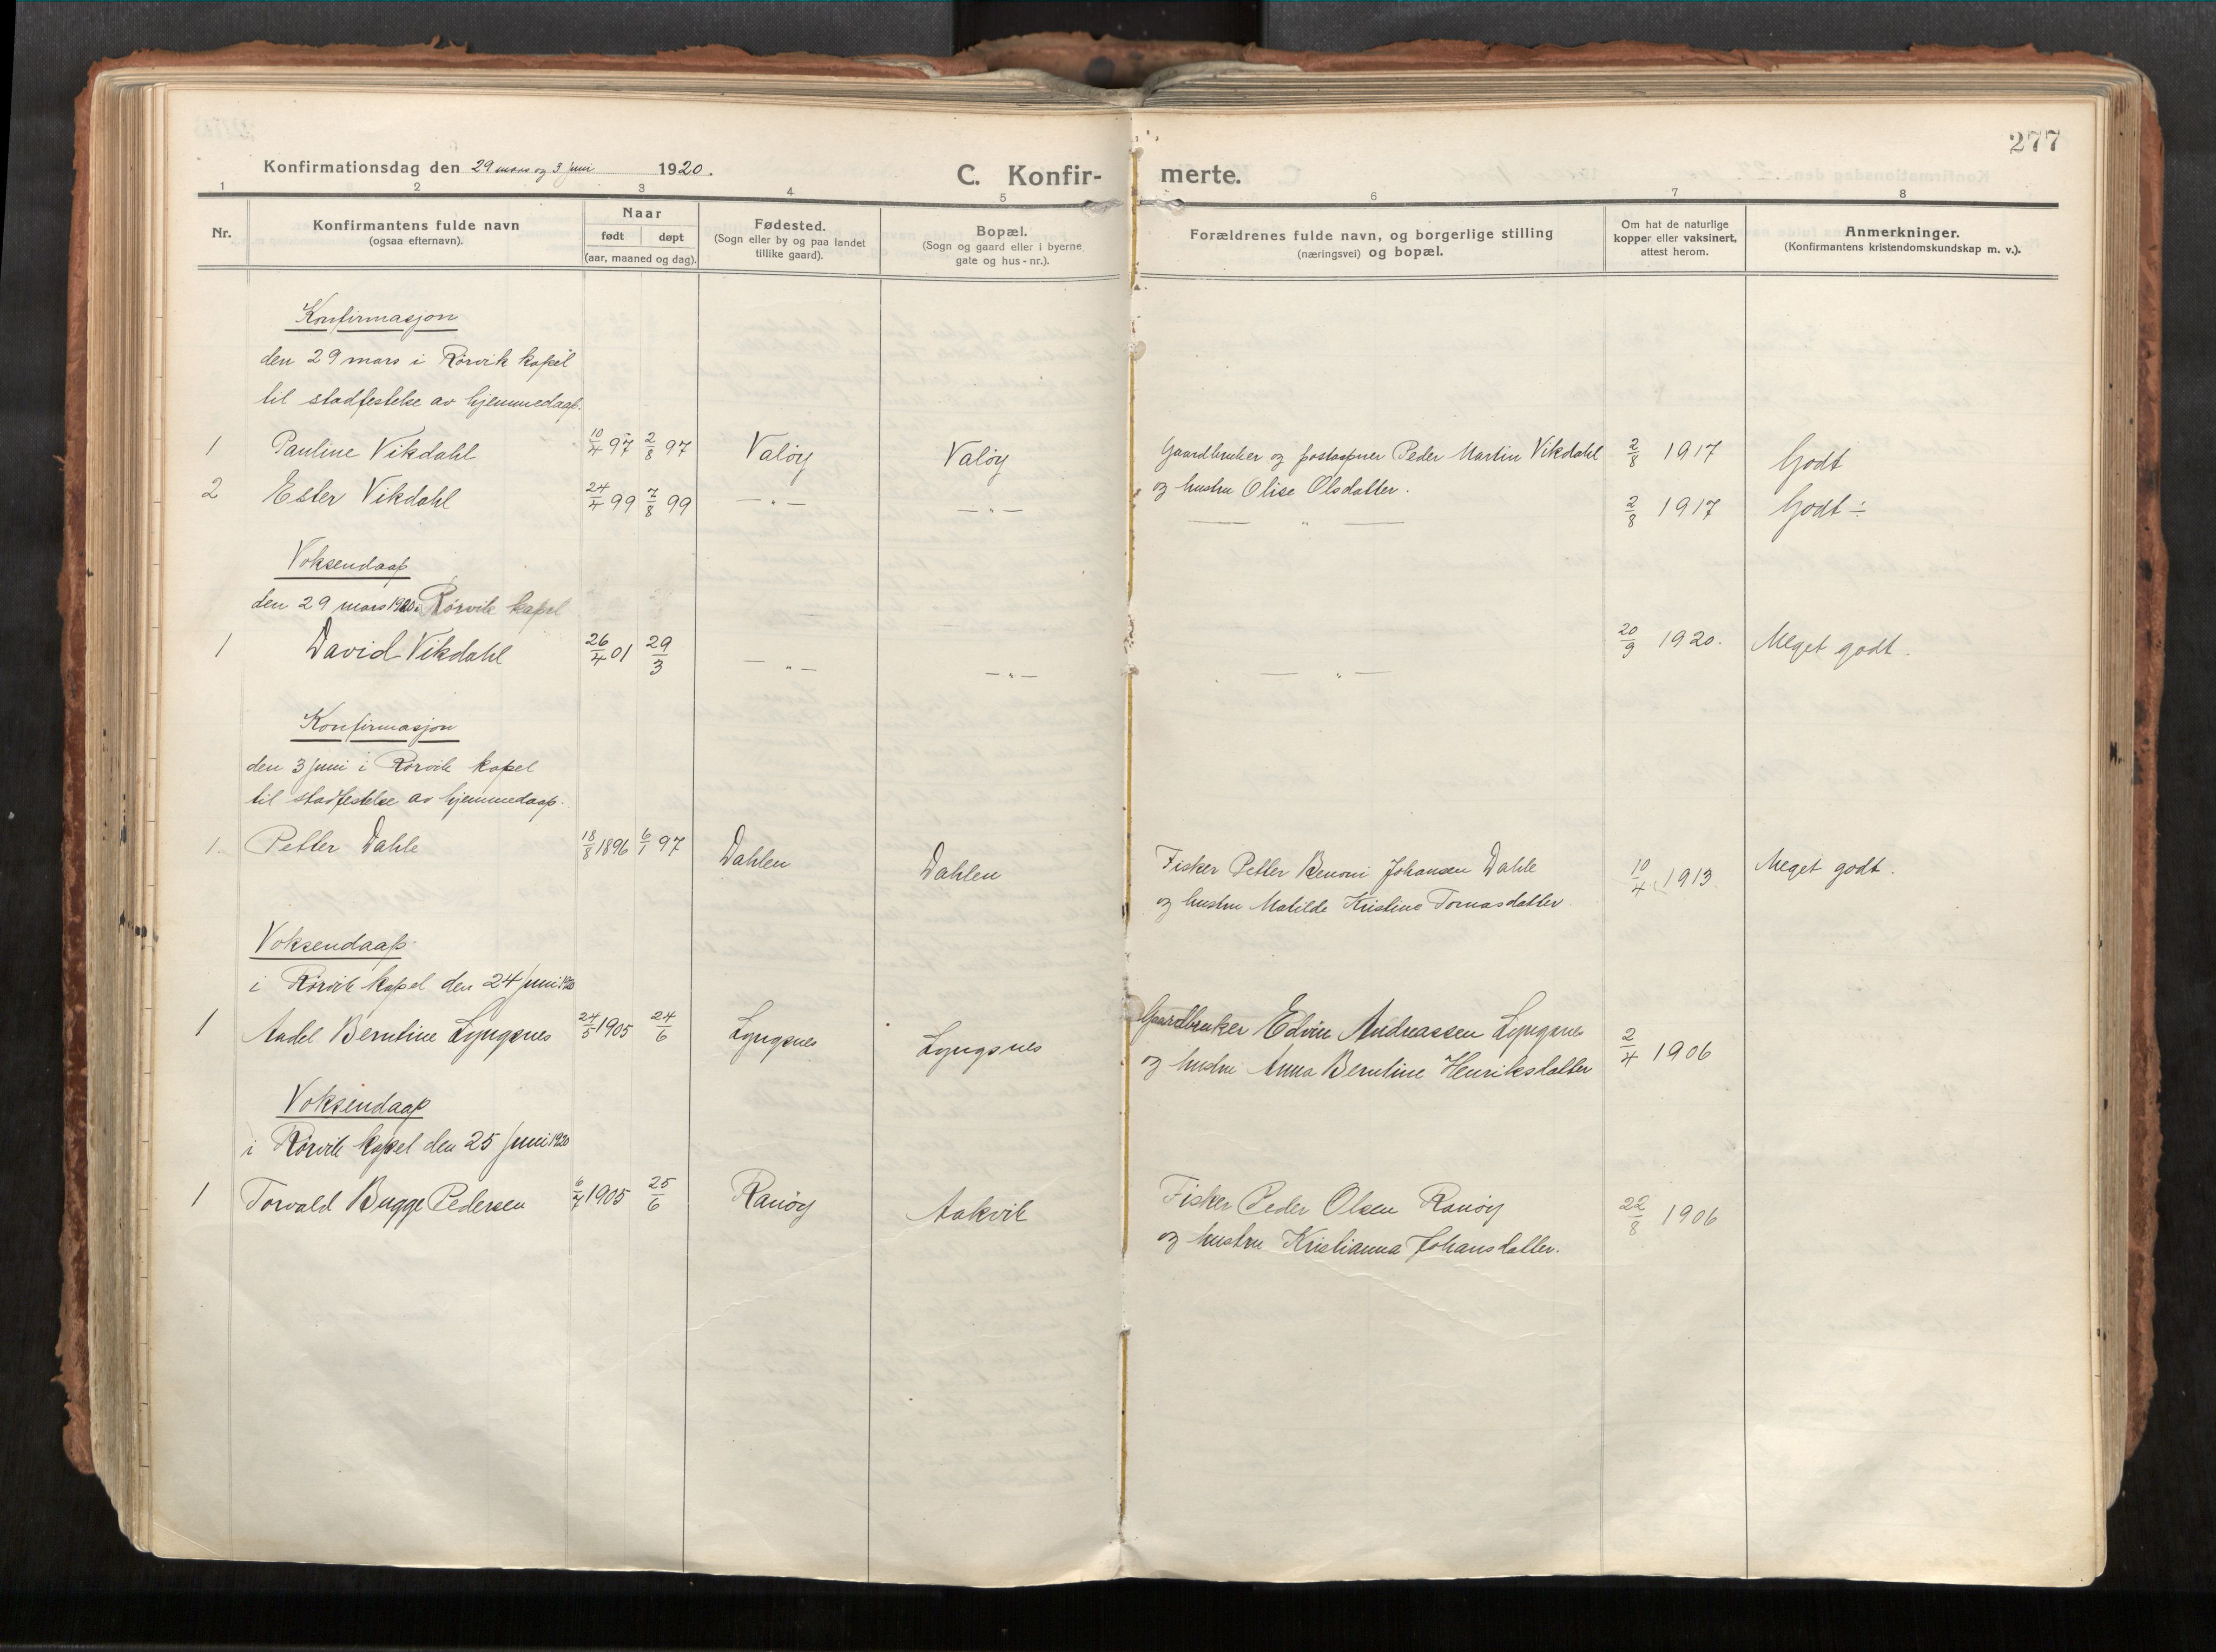 277
Konfirmationsdag den 29 mars og 3 juni 1920.
C. Konfir- merte.
1 2 3 4 5 6 7 8
Nr.
Konfirmantens fulde navn
(ogsaa efternavn).
Naar
født døpt
(aar, maaned og dag).
Fødested.
(Sogn eller by og paa landet
tillike gaard).
Bopæl.
(Sogn og gaard eller i byerne
gate og hus-nr.).
Forældrenes fulde navn, og borgerlige stilling
(næringsvei) og bopæl.
Om hat de naturlige
kopper eller vaksinert,
attest herom.
Anmerkninger.
(Konfirmantens kristendomskundskap m. v.).
Konfirmasjon
den 29 mars i Rørvik kapel
til stadfestelse av hjemmedaap.
1 Pauline Vikdahl 10/4 97 2/8 97 Valöy Valöy Gaardbruker og postaapner Peder Martin Vikdahl 2/8 1917 Godt
og hustru Olise Olsdatter.
2 Ester Vikdahl 24/4 99 7/8 99 — " — — " — — " — 2/8 1917 Godt ÷
Voksendaap
den 29 mars 1920 i Rørvik kapel
1 David Vikdahl 26/4 01 29/3 — " — — " — — " — 20/9 1920. Meget godt.
Konfirmasjon
den 3 juni i Rørvik kapel
til stadfestelse av hjemmedaap.
1. Petter Dahle 18/8 1896 6/1 97 Dahlen Dahlen Fisker Petter Benoni Johansen Dahle 10/4 1913 Meget godt.
og hustru Matilde Kristine Tomasdatter
Voksendaap
i Rørvik kapel den 24 juni 1920
1 Aadel Berntine Lyngsnes 24/5 1905 24/6 Lyngsnes Lyngsnes Gaardbruker Edvin Andreassen Lyngsnes 2/4 1906
og hustru Anna Berntine Henriksdatter
Voksendaap
i Rørvik kapel den 25 juni 1920
1 Torvald Bugge Pedersen 6/7 1905 25/6 Ranöy Aakvik Fisker Peder Olsen Ranöy 22/8 1906
og hustru Kristianna Johansdatter.